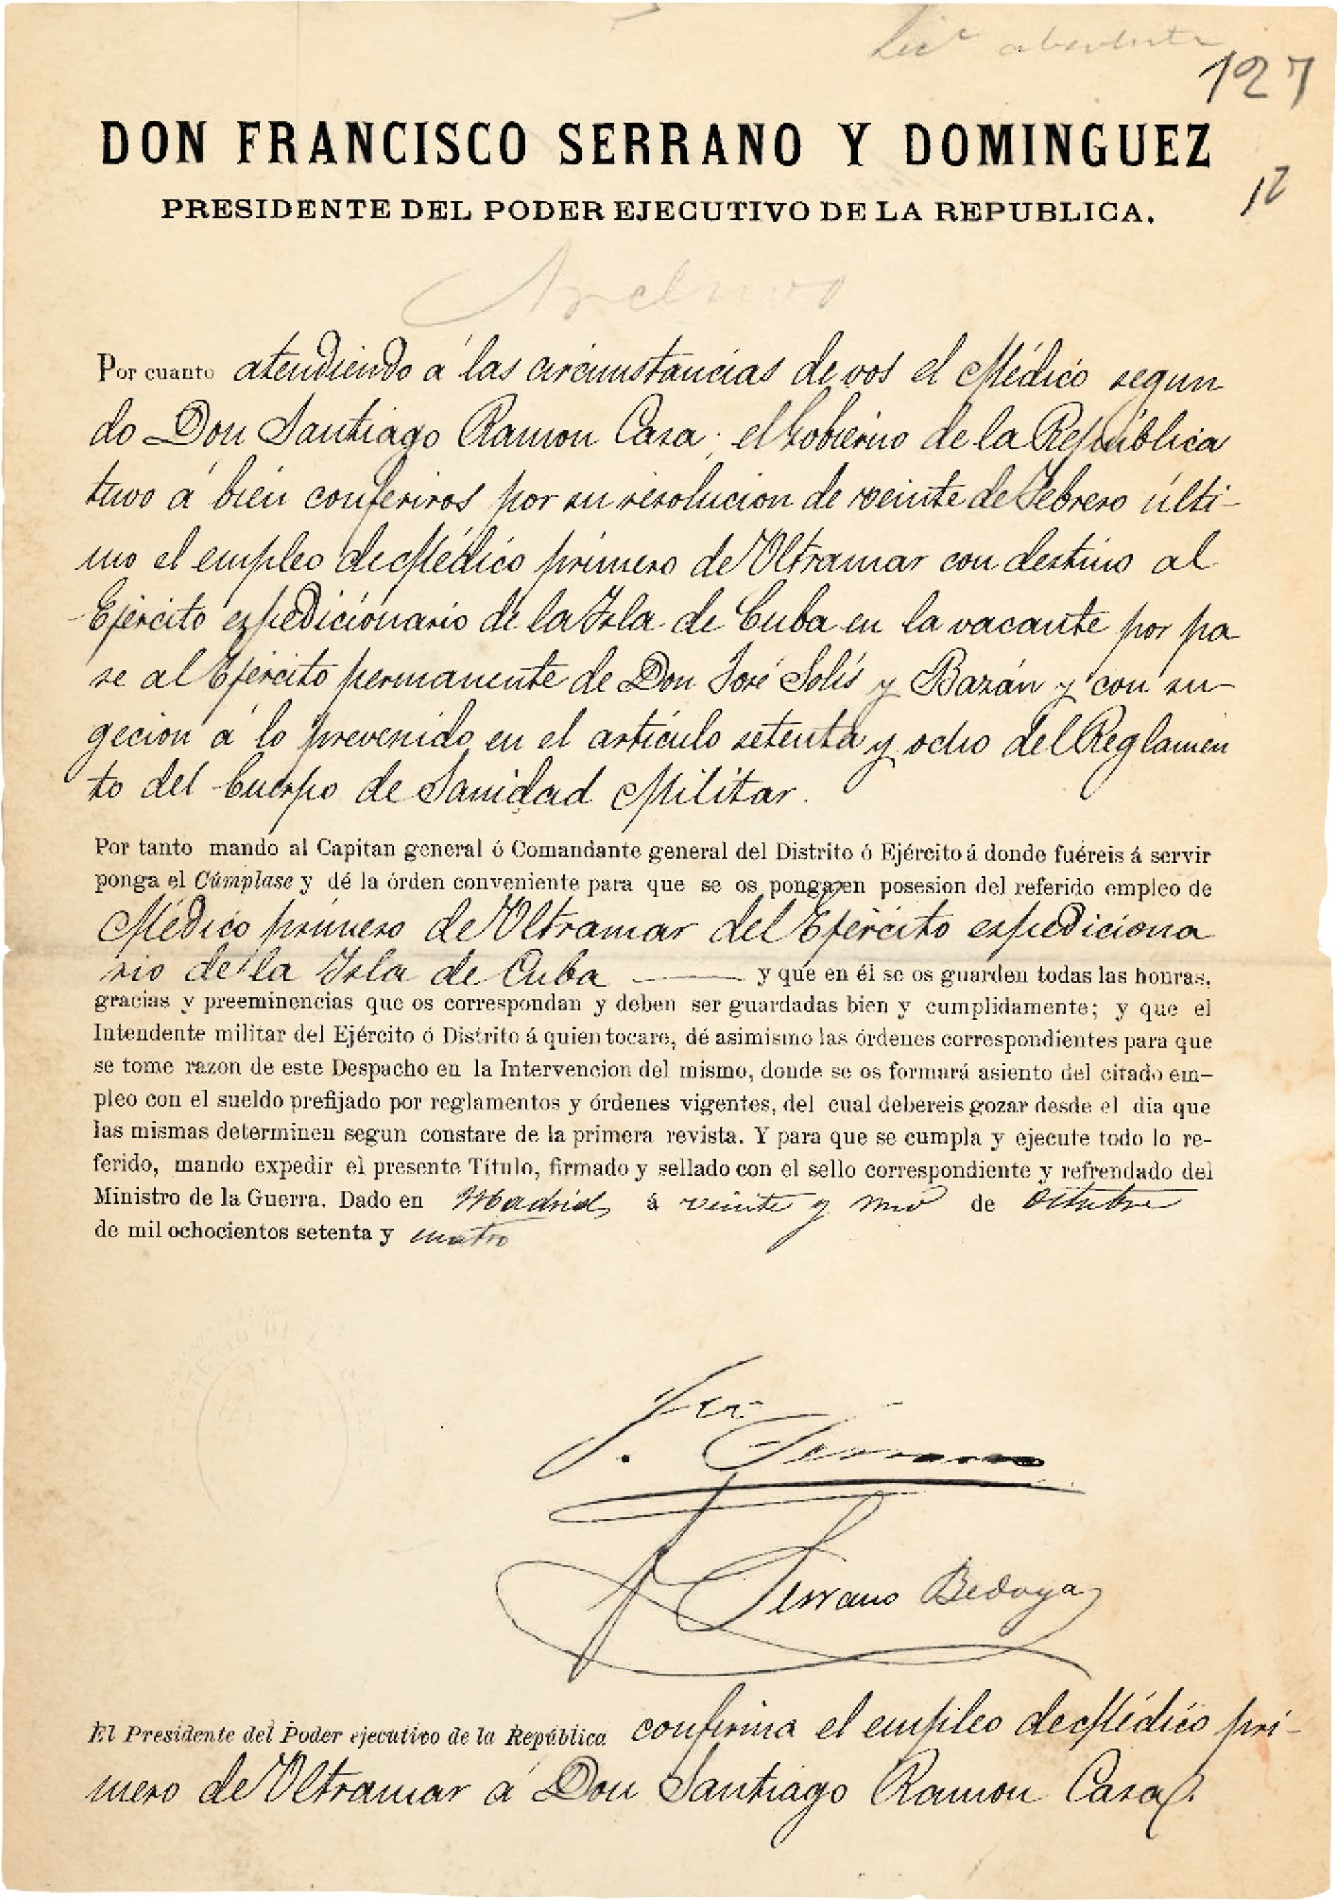 Licª absoluta
127
DON FRANCISCO SERRANO Y DOMINGUEZ
12
PRESIDENTE DEL PODER EJECUTIVO DE LA REPUBLICA.
Archivo
Por cuanto atendiendo á las circunstancias de vos el Médico segun-
do Don Santiago Ramon Casa; el Gobierno de la República
tuvo á bien conferiros por su resolucion de veinte de Febrero últi-
mo el empleo de Médico primero de Ultramar con destino al
Ejército expedicionario de la Isla de Cuba en la vacante por pa-
se al Ejército permanente de Don José Solís y Bazán y con su-
gecion á lo prevenido en el artículo setenta y ocho del Reglamen
to del Cuerpo de Sanidad Militar.
Por tanto mando al Capitan general ó Comandante general del Distrito ó Ejército á donde fuéreis á servir
ponga el Cúmplase y dé la órden conveniente para que se os ponga en posesion del referido empleo de
Médico primero de Ultramar del Ejército expediciona
rio de la Isla de Cuba —— y que en él se os guarden todas las honras,
gracias y preeminencias que os correspondan y deben ser guardadas bien y cumplidamente; y que el
Intendente militar del Ejército ó Distrito á quien tocare, dé asimismo las órdenes correspondientes para que
se tome razon de este Despacho en la Intervencion del mismo, donde se os formará asiento del citado em-
pleo con el sueldo prefijado por reglamentos y órdenes vigentes, del cual debereis gozar desde el dia que
las mismas determinen segun constare de la primera revista. Y para que se cumpla y ejecute todo lo re-
ferido, mando expedir el presente Título, firmado y sellado con el sello correspondiente y refrendado del
Ministro de la Guerra. Dado en Madrid á veinte y uno de Octubre
de mil ochocientos setenta y cuatro
Fco. Serrano
Serrano Bedoya
El Presidente del Poder ejecutivo de la República confirma el empleo de Médico pri-
mero de Ultramar á Don Santiago Ramon Casa.